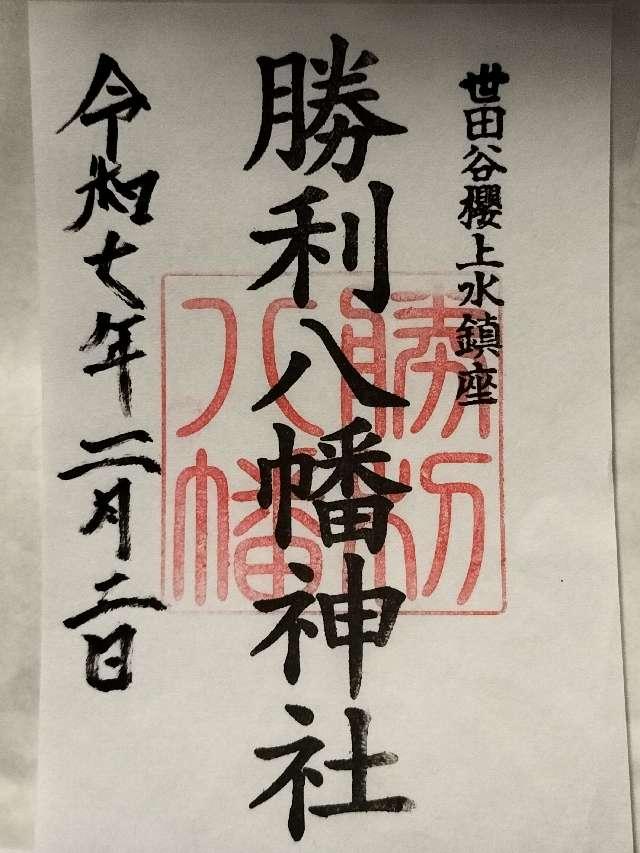 世田谷櫻上水鎮座
勝利八幡神社
勝利
八幡
令和七年二月二日